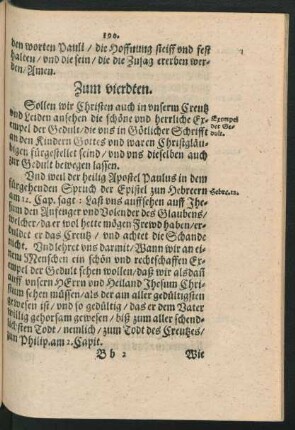 190.
den worten Pauli / die Hoffnung steiff vnd fest
halten / vnd die sein / die die Zusag ererben wer-
den / Amen.
Zum vierdten.
Sollen wir Christen auch in vnserm Creutz
vnd Leiden ansehen die schöne vnd herrliche Ex-
empel der Gedult / die vns in Götlicher Schrifft
an den Kindern Gottes vnd waren Christgläu-
bigen fürgestellet seind / vnd vns dieselben auch
zur Gedult bewegen lassen.
Exempel
der Ge-
dult.
Vnd weil der heilig Apostel Paulus in dem
fürgehenden Spruch der Epistel zun Hebreern
am 12. Cap. sagt : Last vns auffsehen auff Jhe-
sum den Anfenger vnd Volender des Glaubens /
welcher / da er wol hette mögen Frewd haben / er-
duldet er das Creutz / vnd achtet die Schande
nicht. Vnd lehret vns darmit / Wann wir an ei-
nem Menschen ein schön vnd rechtschaffen Ex-
empel der Gedult sehen wollen / daß wir alsdañ
auff vnsern HErrn vnd Heiland Jhesum Chri-
stum sehen müssen / als der am aller gedültigsten
gewesen ist / vnd so gedültig / das er dem Vater
willig gehorsam gewesen / biß zum aller schend-
lichsten Todt / nemlich / zum Todt des Creutzes /
zun Philip. am 2. Capit.
Hebre. 12.
B b 2
Wie